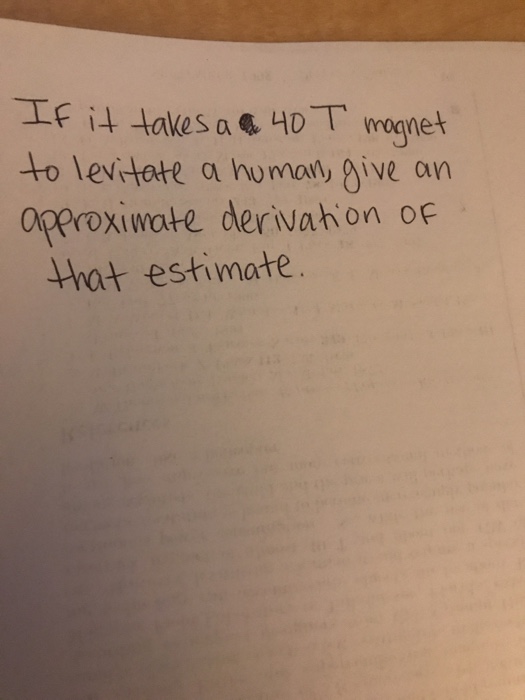 If it takes a 40 T magnet
to levitate a human, give an
approximate derivation of
that estimate.